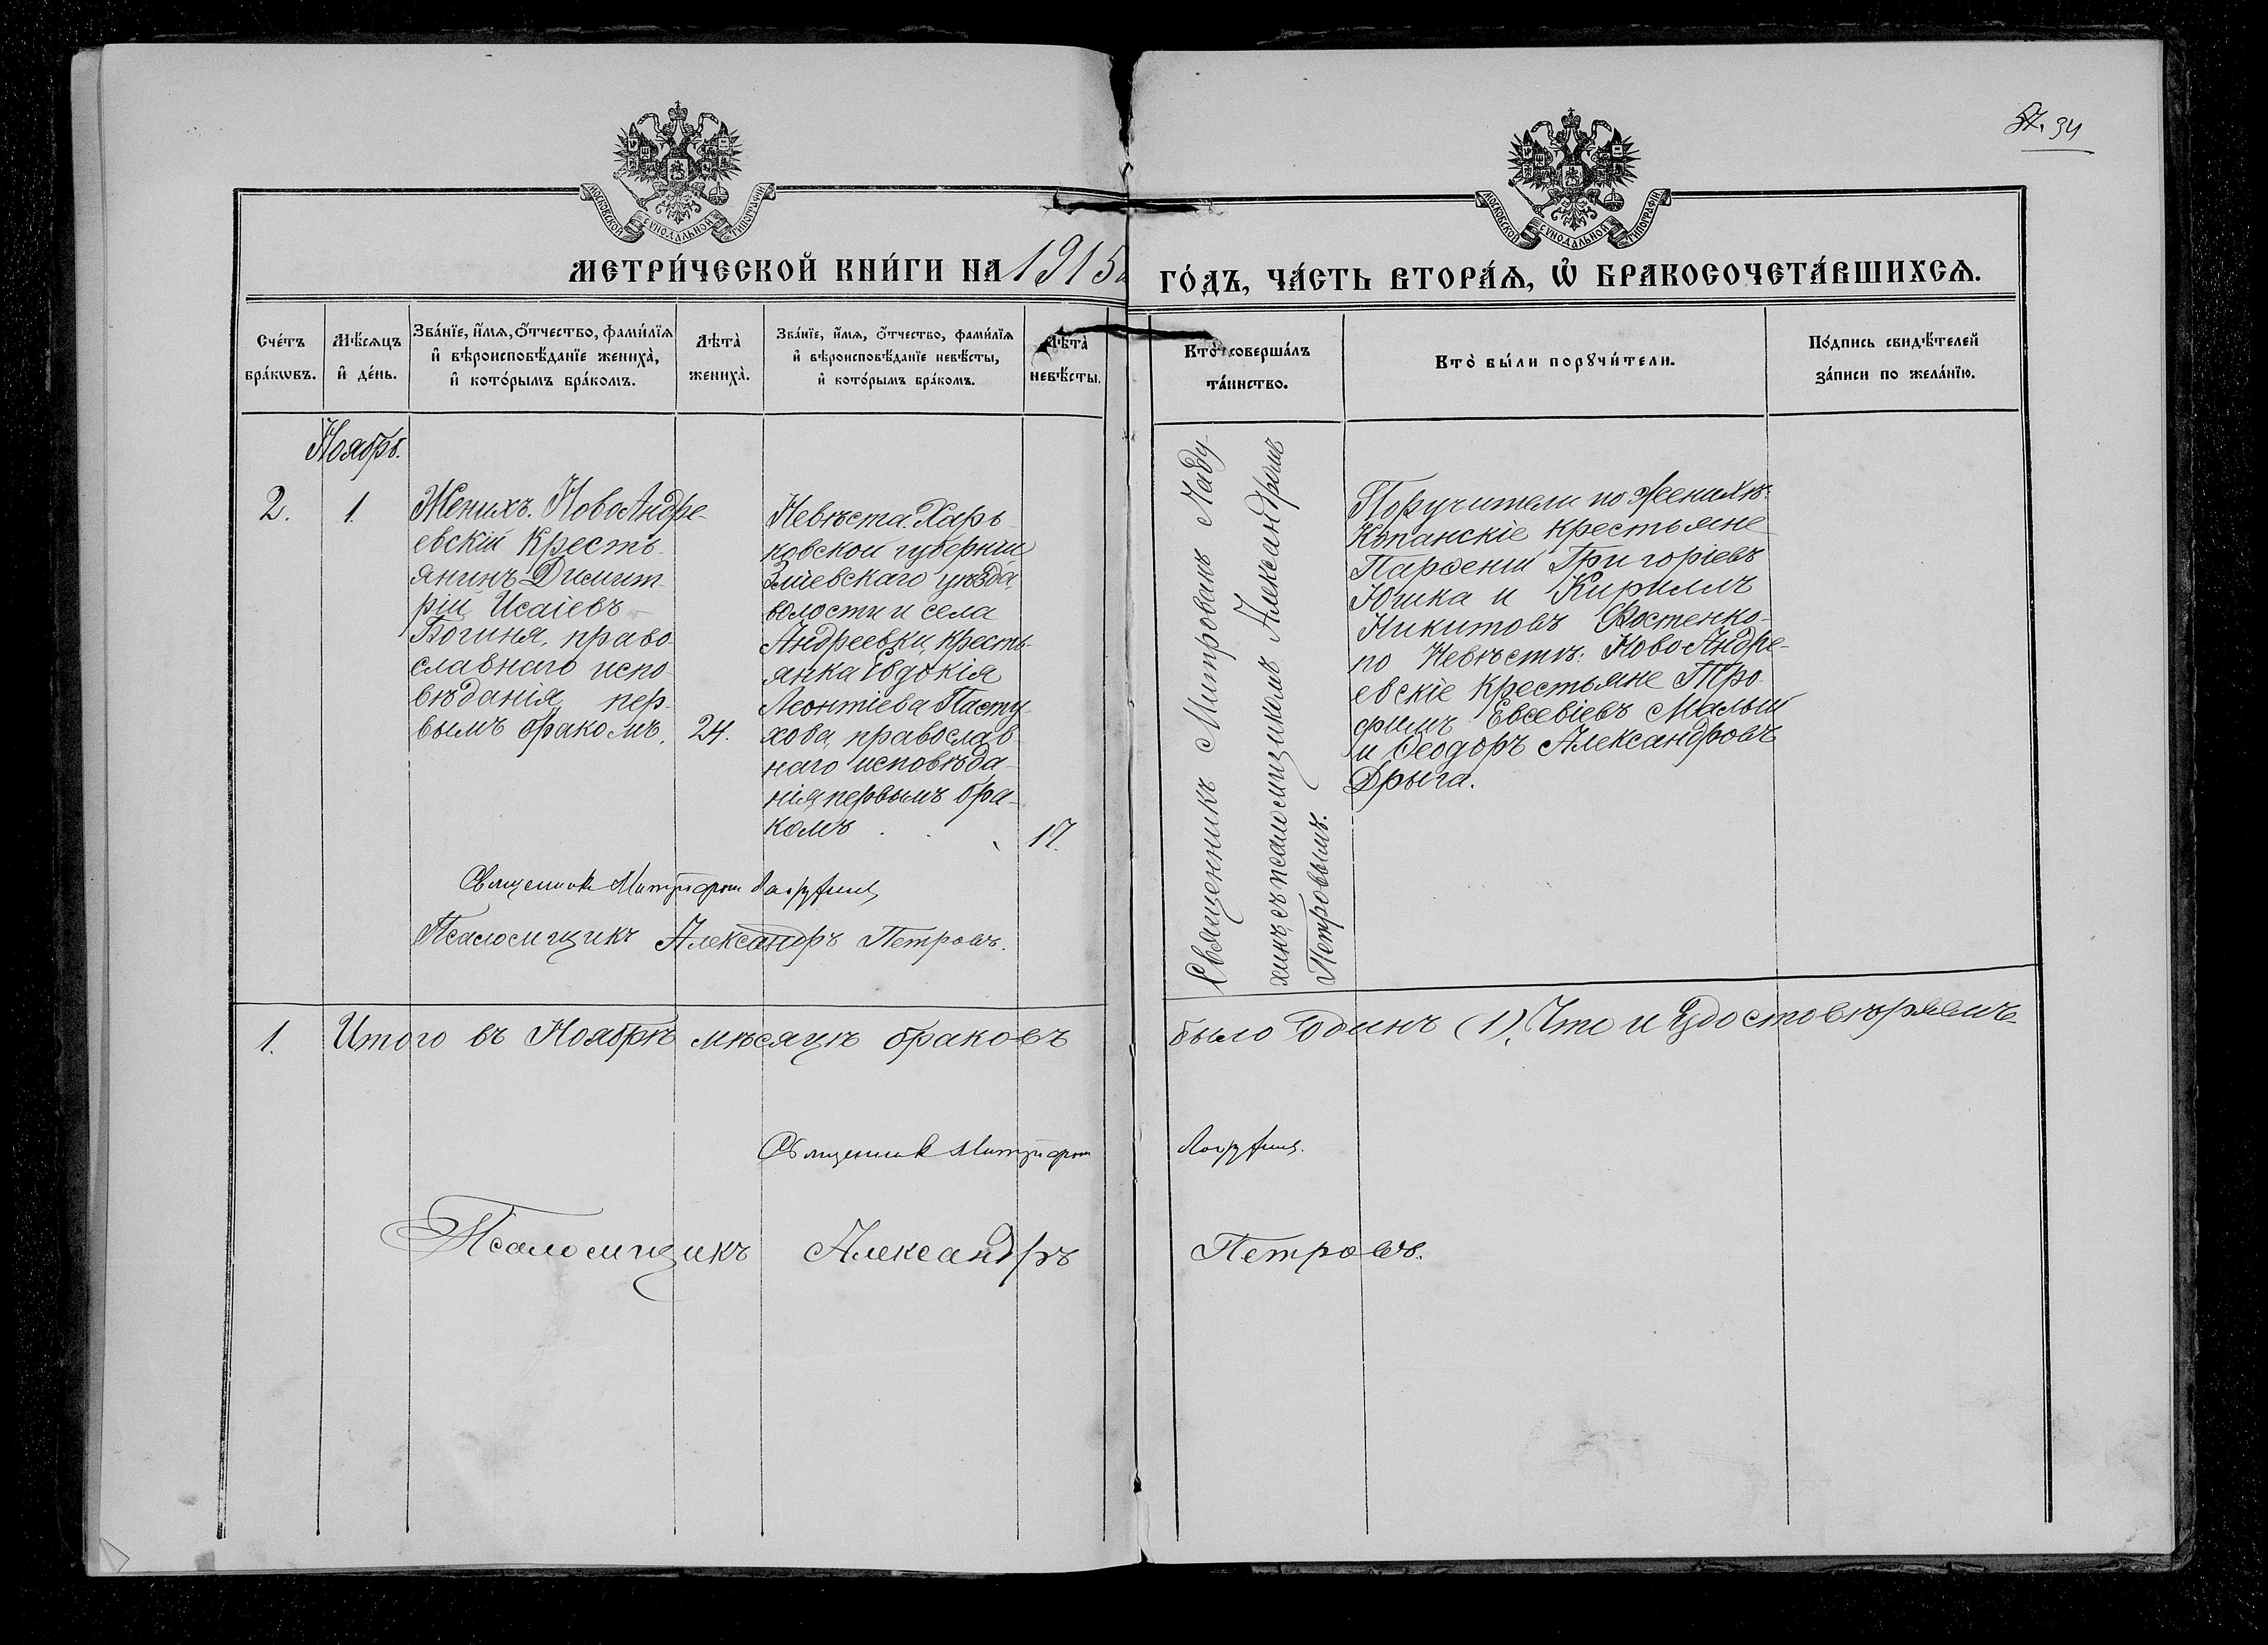 57. 34
МОСКОВСКОЙ СѴНОДАЛЬНОЙ ТИПОГРАФІИ
МОСКОВСКОЙ СѴНОДАЛЬНОЙ ТИПОГРАФІИ
МЕТРИ́ЧЕСКОЙ КНИ́ГИ НА 1915 ГО́ДЪ, ЧА́СТЬ ВТОРА́Ѧ, Ѡ҆ БРАКОСОЧЕТА́ВШИХСѦ.
Сче́тъ бра́кѡвъ.
Мѣ́сѧцъ и҆ де́нь.
Зва́нїе, и҆́мѧ, ѻ҆́тчество, фами́лїѧ
и҆ вѣроисповѣ́данїе жениха̀,
и҆ кото́рымъ бра́комъ.
Лѣта̀ жениха̀.
Зва́нїе, и҆́мѧ, ѻ҆́тчество, фами́лїѧ
и҆ вѣроисповѣ́данїе невѣ́сты,
и҆ кото́рымъ бра́комъ.
Лѣта̀ невѣ́сты.
Кто̀ совершáлъ
та́инство.
Кто̀ бы́ли порꙋчи́тели.
По́дпись свидѣ́телей
за́писи по жела́нїю.
Ноябрь.
2.
1.
Женихъ. НовоАндре-
евскій Кресть-
янинъ Димит-
рій Исаіевъ
Богиня, право-
славнаго испо-
вѣданія, пер-
вымъ бракомъ.
24.
Невѣста. Харь-
ковской губерніи
Зміевскаго уѣзда,
волости и села
Андреевки, кресть-
янка Евдокія
Леонтіева Пасту-
хова, православ-
наго исповѣда-
нія, первымъ бра-
комъ
17.
Священникъ Митрофанъ Ладу-
хинъ, съ псаломщикомъ Александромъ
Петровымъ.
Поручители по Женихѣ:
Копанскіе крестьяне
Парѳеній Григоріевъ
Юшка и Кириллъ
Никитовъ Костенко-
по Невѣстѣ: НовоАндре-
евскіе крестьяне Тро-
фимъ Евсевіевъ Малый
и Ѳеодоръ Александровъ
Дрыга.
Священникъ Митрофанъ
Псаломщикъ Александръ Петровъ.
1. Итого въ Ноябрѣ мѣсяцѣ браковъ было Одинъ (1), Что и Удостовѣряемъ
Священникъ Митрофанъ
Псаломщикъ Александръ Петровъ.